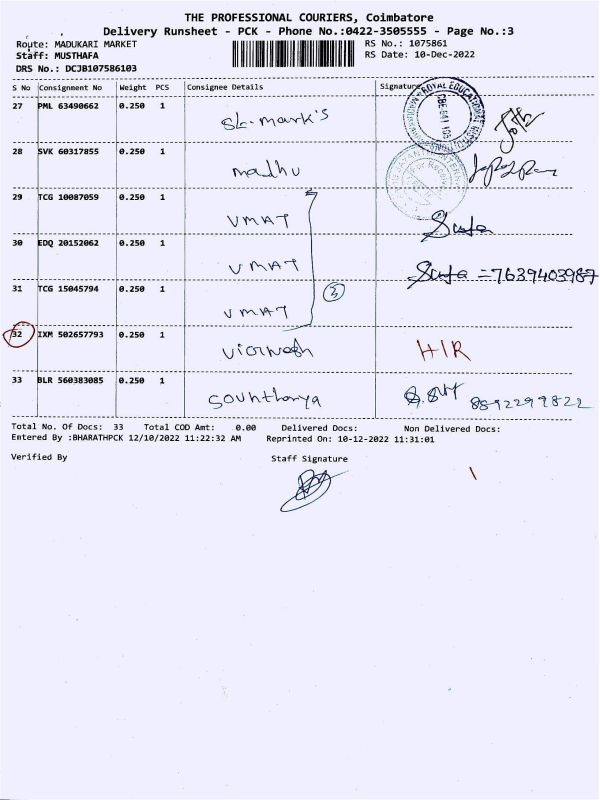 THE PROFESSIONAL COURIERS, Coimbatore
Delivery Runsheet - PCK - Phone No.:0422-3505555 - Page No.:3
Route: MADUKARI MARKET
RS No.: 1075861
Staff: MUSTHAFA
RS Date: 10-Dec-2022
DRS No.: DCJB107586103
S No Consignment No Weight PCS Consignee Details Signature
27 PML 63490662 0.250 1 St-mark's
28 SVK 60317855 0.250 1 madhu
29 TCG 10087059 0.250 1 VMAT
30 EDQ 20152062 0.250 1 VMAT =7639403987
31 TCG 15045794 0.250 1 VMAT 3
32 IXM 502657793 0.250 1 HIR
33 BLR 560383085 0.250 1 Souhtharya 8892299822
Total No. Of Docs: 33 Total COD Amt: 0.00 Delivered Docs: Non Delivered Docs:
Entered By :BHARATHPCK 12/10/2022 11:22:32 AM Reprinted On: 10-12-2022 11:31:01
Verified By Staff Signature